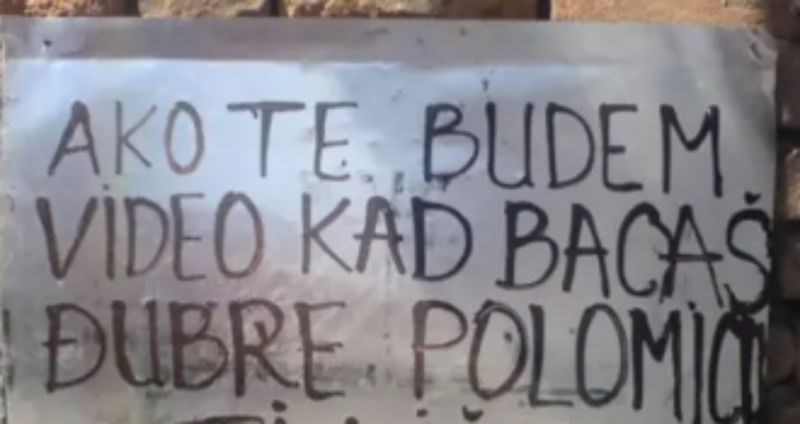 AKO TE BUDEM
VIDEO KAD BACAŠ
ĐUBRE